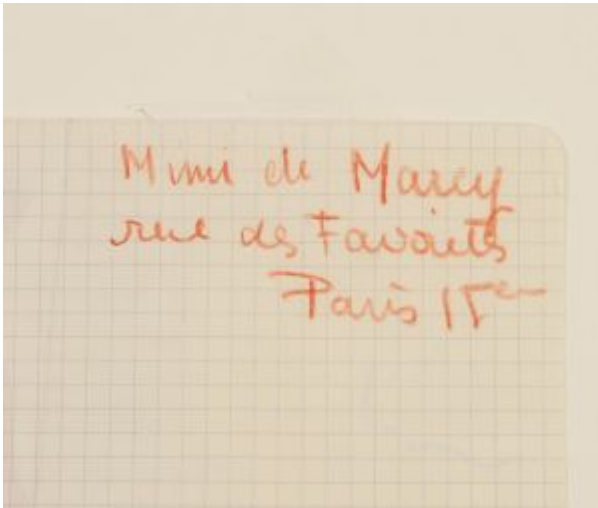 Mimi de Marcy
rue des Favorites
Paris 15em